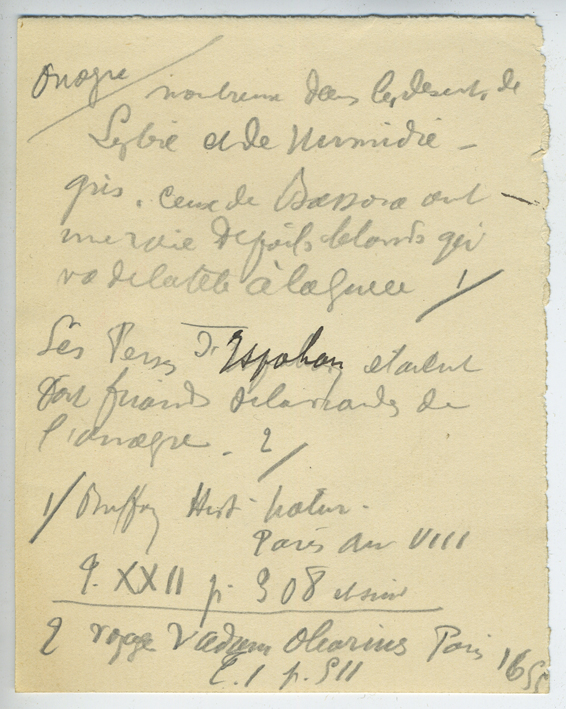 Onagre nombreux dans les déserts de
Lybie et de Numidie –
gris. ceux de Bassora ont
une raie de poils blancs qui
va de la tête à la queue 1/
Les Perses d'Ispahan étaient
fort friands de la viande de
l'onagre – 2/
1/ Buffon Hist. natur.
Paris an VIII
T. XXII p. 308 et suiv
2 voyage d'adam Olearius Paris 16
T. 1 p. 511